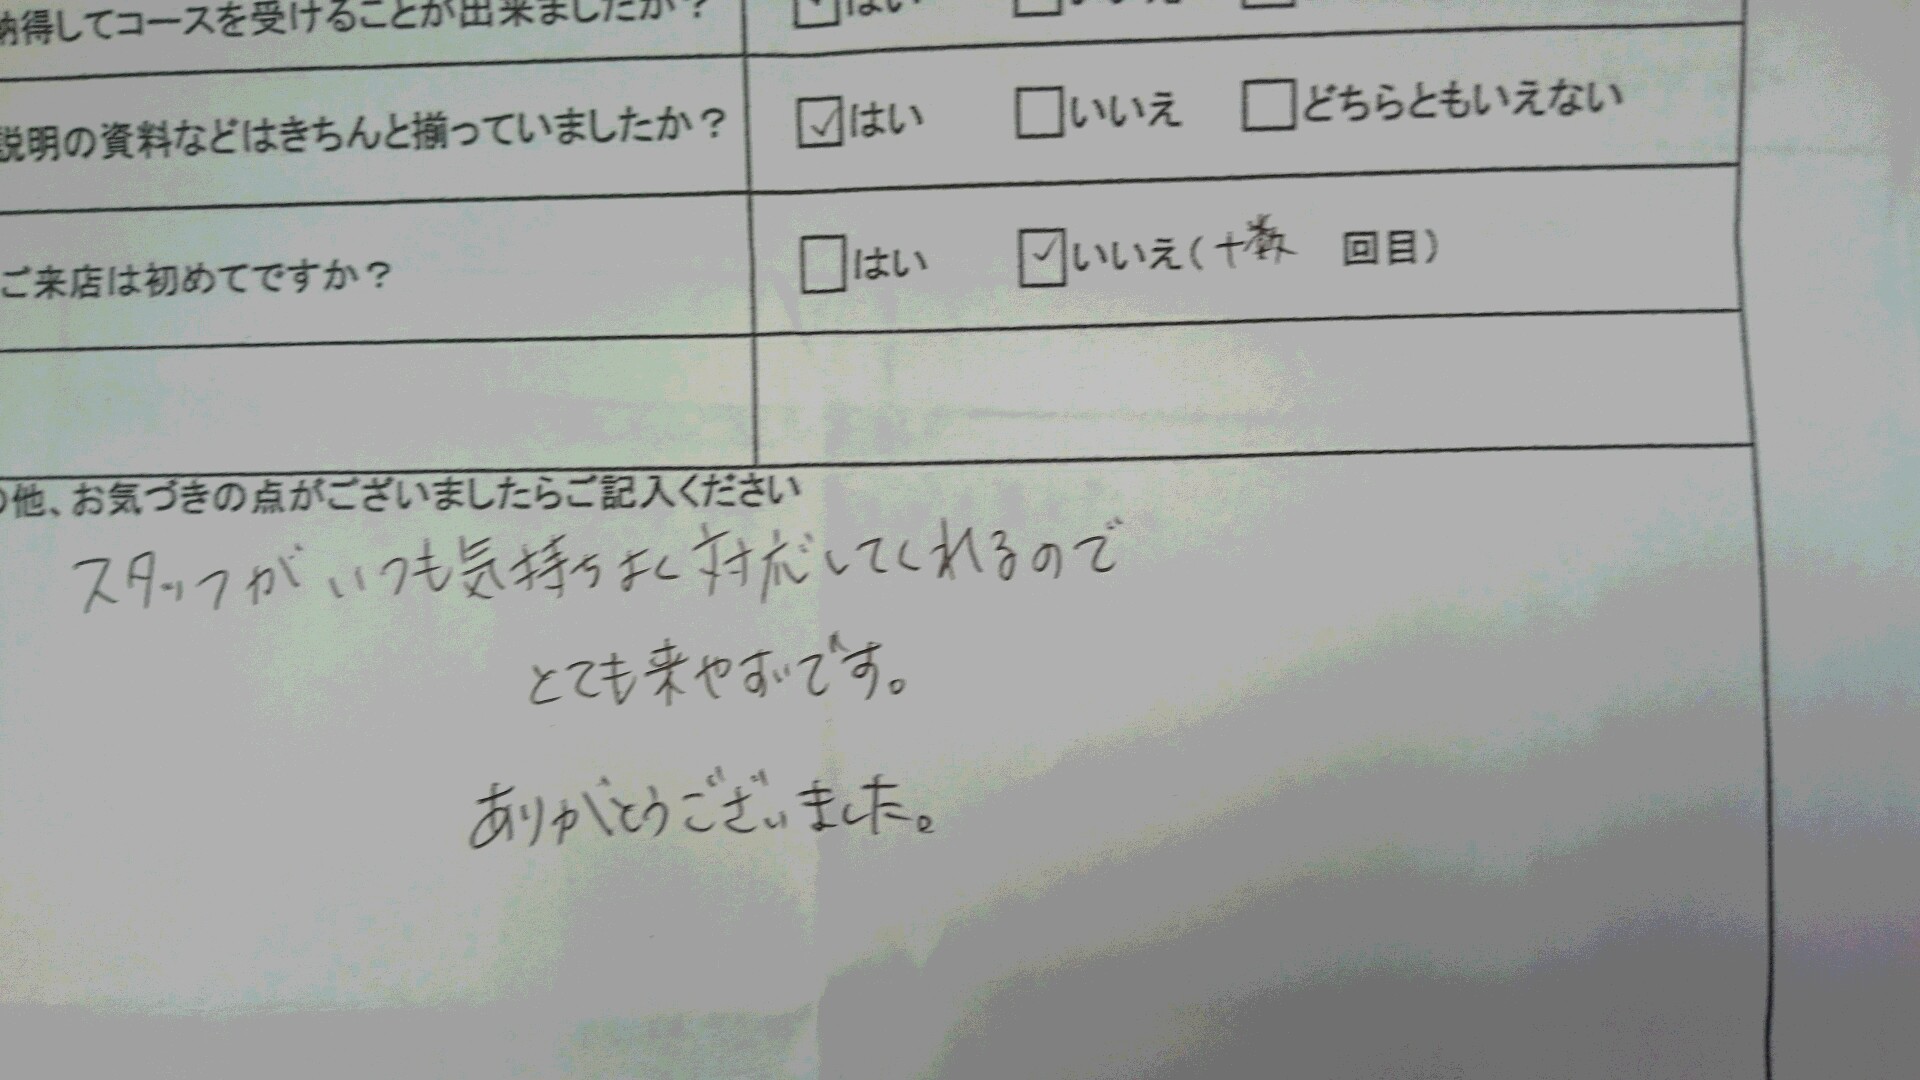 納得してコースを受けることが出来ましたか？ ☑はい □いいえ □
説明の資料などはきちんと揃っていましたか？ ☑はい □いいえ □どちらともいえない
ご来店は初めてですか？ □はい ☑いいえ（十数 回目）
の他、お気づきの点がございましたらご記入ください
スタッフがいつも気持ちよく対応してくれるので
とても来やすいです。
ありがとうございました。